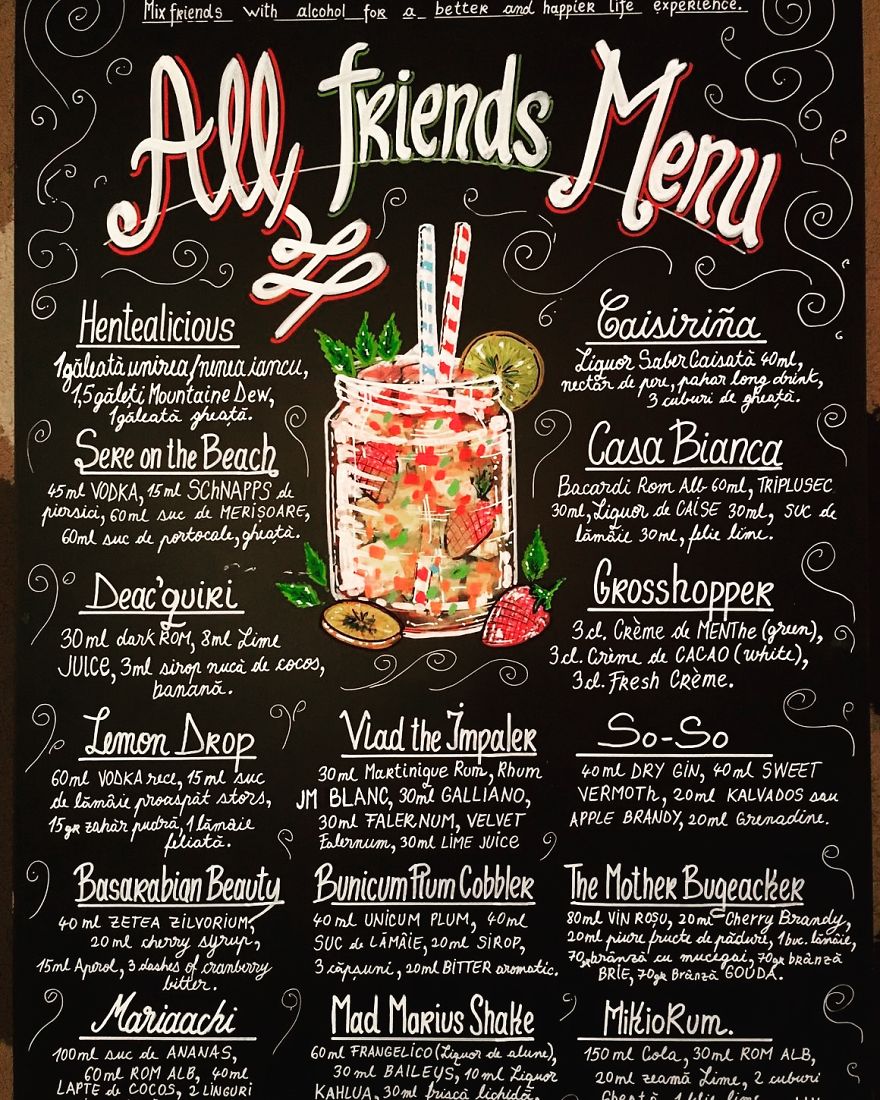 Mix friends with alcohol for a better and happier life experience.
All friends Menu
Hentealicious
1găleată unirea/nenea iancu,
1,5găleți Mountaine Dew,
1găleată gheață.
Sere on the Beach
45ml VODKA, 15ml SCHNAPPS de
piersici, 60ml suc de MERIȘOARE,
60ml suc de portocale, gheață.
Deac'quiri
30ml dark ROM, 8ml Lime
JUICE, 3ml sirop nucă de cocos,
banană.
Lemon Drop
60ml VODKA rece, 15ml suc
de lămâie proaspăt stors,
15gr zahăr pudră, 1 lămâie
feliată.
Basarabian Beauty
40 ml ZETEA ZILVORIUM,
20ml cherry syrup,
15ml Aperol, 3 dashes of cranberry
bitter.
Mariaachi
100ml suc de ANANAS,
60ml ROM ALB, 40ml
LAPTE de COCOS, 2 LINGURI
Vlad the Impaler
30ml Martinique Rum, Rhum
JM BLANC, 30ml GALLIANO,
30ml FALERNUM, VELVET
Falernum, 30ml LIME JUICE
Bunicum Plum Cobbler
40ml UNICUM PLUM, 40ml
SUC de LĂMÂIE, 20ml SIROP,
3 căpșuni, 20ml BITTER aromatic.
Mad Marius Shake
60ml FRANGELICO (Liquor de alune),
30ml BAILEYS, 10ml Liquor
KAHLUA, 30ml frișcă lichidă,
Caisiriña
Liquor Saber Caisată 40ml,
nectar de pere, pahar long drink,
3 cuburi de gheață.
Casa Bianca
Bacardi Rom Alb 60ml, TRIPLUSEC
30ml, Liquor de CAISE 30ml, SUC de
lămâie 30ml, felie lime.
Grosshopper
3cl. Crème de MENThe (green),
3cl. Crème de CACAO (white),
3cl. Fresh Crème.
So-So
40ml DRY GIN, 40ml SWEET
VERMOTh, 20ml KALVADOS sau
APPLE BRANDY, 20ml Grenadine.
The Mother Bugeacker
80ml VIN ROȘU, 20ml Cherry Brandy,
20ml piure fructe de pădure, 1buc. lămâie,
70gr brânză cu mucigai, 70gr brânză
BRIE, 70gr Brânză GOUDA.
MikioRum.
150ml Cola, 30ml ROM ALB,
20ml zeamă Lime, 2 cuburi
Gheață, 1 felie lime